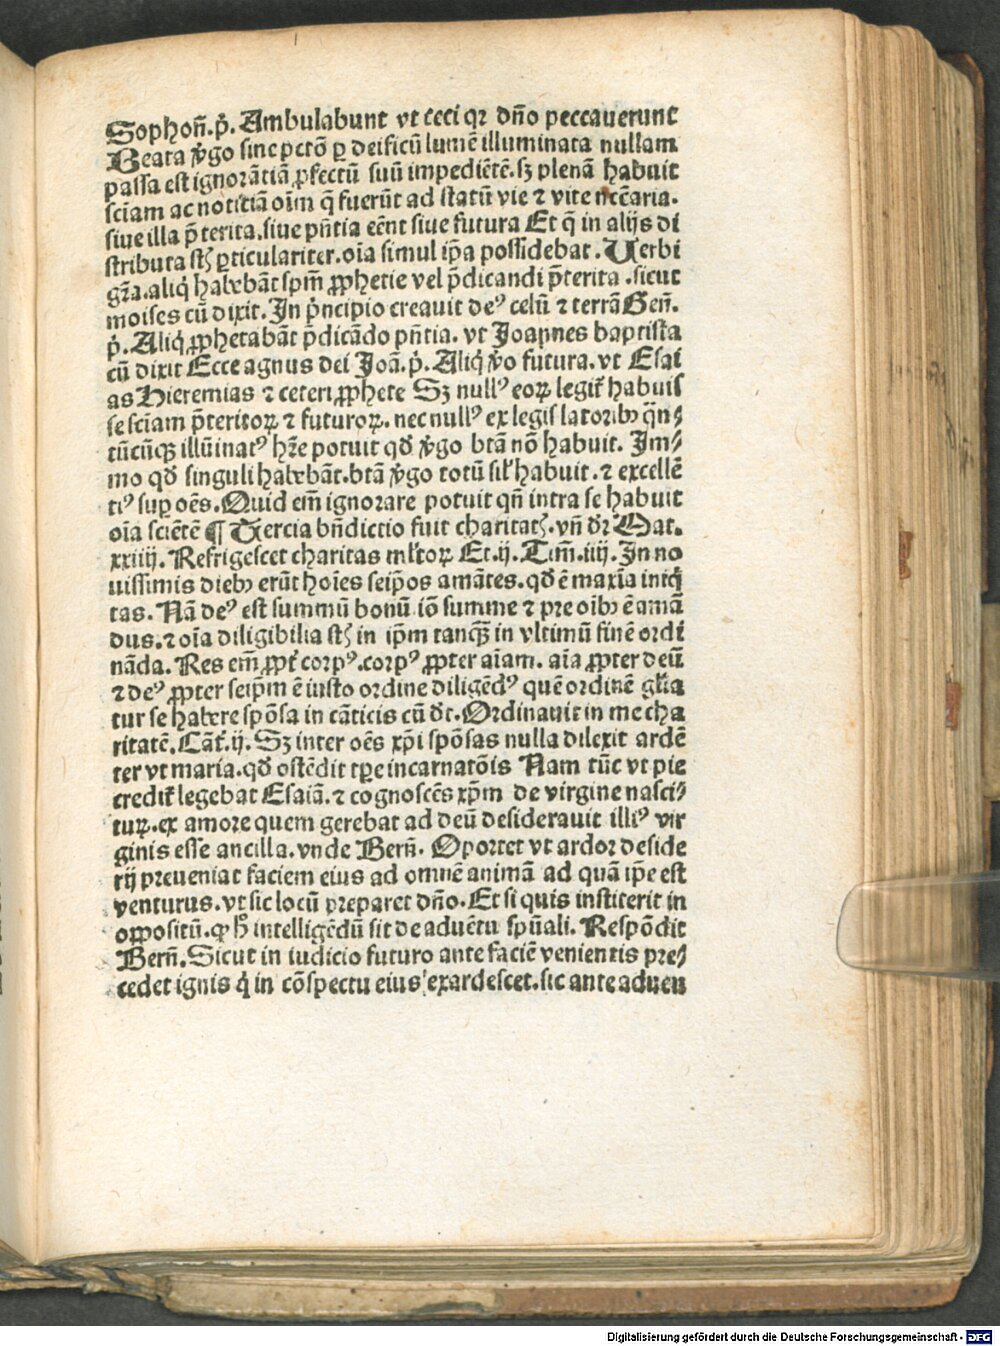 Sophoñ.ṗ. Ambulabunt vt ceci qꝛ dño peccauerunt
Beata v̇go sine pctō ꝑ deificū lumē illuminata nullam
passa est ignorātiā ꝓfectū suū impediētē.sꝫ plenā habuit
sciam ac notitiā oim̄ q̄ fuerūt ad statū vie ⁊ vite nccāria.
siue illa p̄terita.siue pn̄tia eēnt siue futura Et q̄ in alijs di
stributa sūt ꝑticulariter.oia simul ipa possidebat. Uerbi
gr̄a.aliq̇ habebāt spm̄ ꝓphetie vel p̄dicandi p̄terita .sicut
moises cū dixit. In pṅcipio creauit deꝰ celū ⁊ terrā Geñ.
ṗ. Aliq̇ ꝓphetabāt p̄dicādo pn̄tia. vt Joannes baptista
cū dixit Ecce agnus dei Joā.ṗ. Aliq̇ v̇o futura.vt Esai
as Hieremias ⁊ ceteri ꝓphete Sꝫ nullꝰ eoꝝ legit̄ habuis
se sciam p̄teritoꝝ ⁊ futuroꝝ. nec nullꝰ ex legis latoribꝰ q̄n⸗
tūcūqꝫ illūinatꝰ hr̄e potuit qd̄ v̇go btā nō habuit. Im⸗
mo qd̄ singuli habebāt.btā v̇go totū sil̄ habuit.⁊ excellē
tiꝰ suꝑ oēs.Quid em̄ ignorare potuit qn̄ intra se habuit
oia sciētē ¶ Tercia bn̄dictio fuit charitatꝭ.vn̄ dr̄ Mat.
xxiiij. Refrigescet charitas ml̄toꝝ Et.ij. Tim̄.iiij. In no
uissimis diebꝰ erūt hoies seipos amātes.qd̄ ē maxia iniq̇
tas. Nā deꝰ est summū bonū iō summe ⁊ pre oibꝰ ē amā
dus.⁊ oia diligibilia sūt in ipm̄ tanqꝫ in vltimū finē ordi
nāda. Res em̄ ꝓpt̄ corpꝰ.corpꝰ ꝓpter aiam. aia ꝓpter deū
⁊ deꝰ ꝓpter seipm̄ ē iusto ordine diligēdꝰ quē ordinē gl̄ia
tur se habere spōsa in cāticis cū dt̄. Ordinauit in me cha
ritatē. Cāt̄.ij. Sꝫ inter oēs xp̄i spōsas nulla dilexit ardē
ter vt maria.qd̄ ostēdit tp̄e incarnatōis Nam tūc vt pie
credit̄ legebat Esaiā.⁊ cognoscēs xp̄m de virgine nasci⸗
tuꝝ.ex amore quem gerebat ad deū desiderauit illiꝰ vir
ginis esse ancilla.vnde Berñ. Oportet vt ardor deside
rij preueniat faciem eius ad omnē animā ad quā ipe est
venturus.vt sic locū preparet dño.Et si quis institerit in
oppositū.ꝙ h̄ intelligēdū sit de aduētu spūali. Respōdit
Berñ.Sicut in iudicio futuro ante faciē venientis pre⸗
cedet ignis q̇ in cōspectu eius exardescet.sic ante aduen
Digitalisierung gefördert durch die Deutsche Forschungsgemeinschaft - DFG